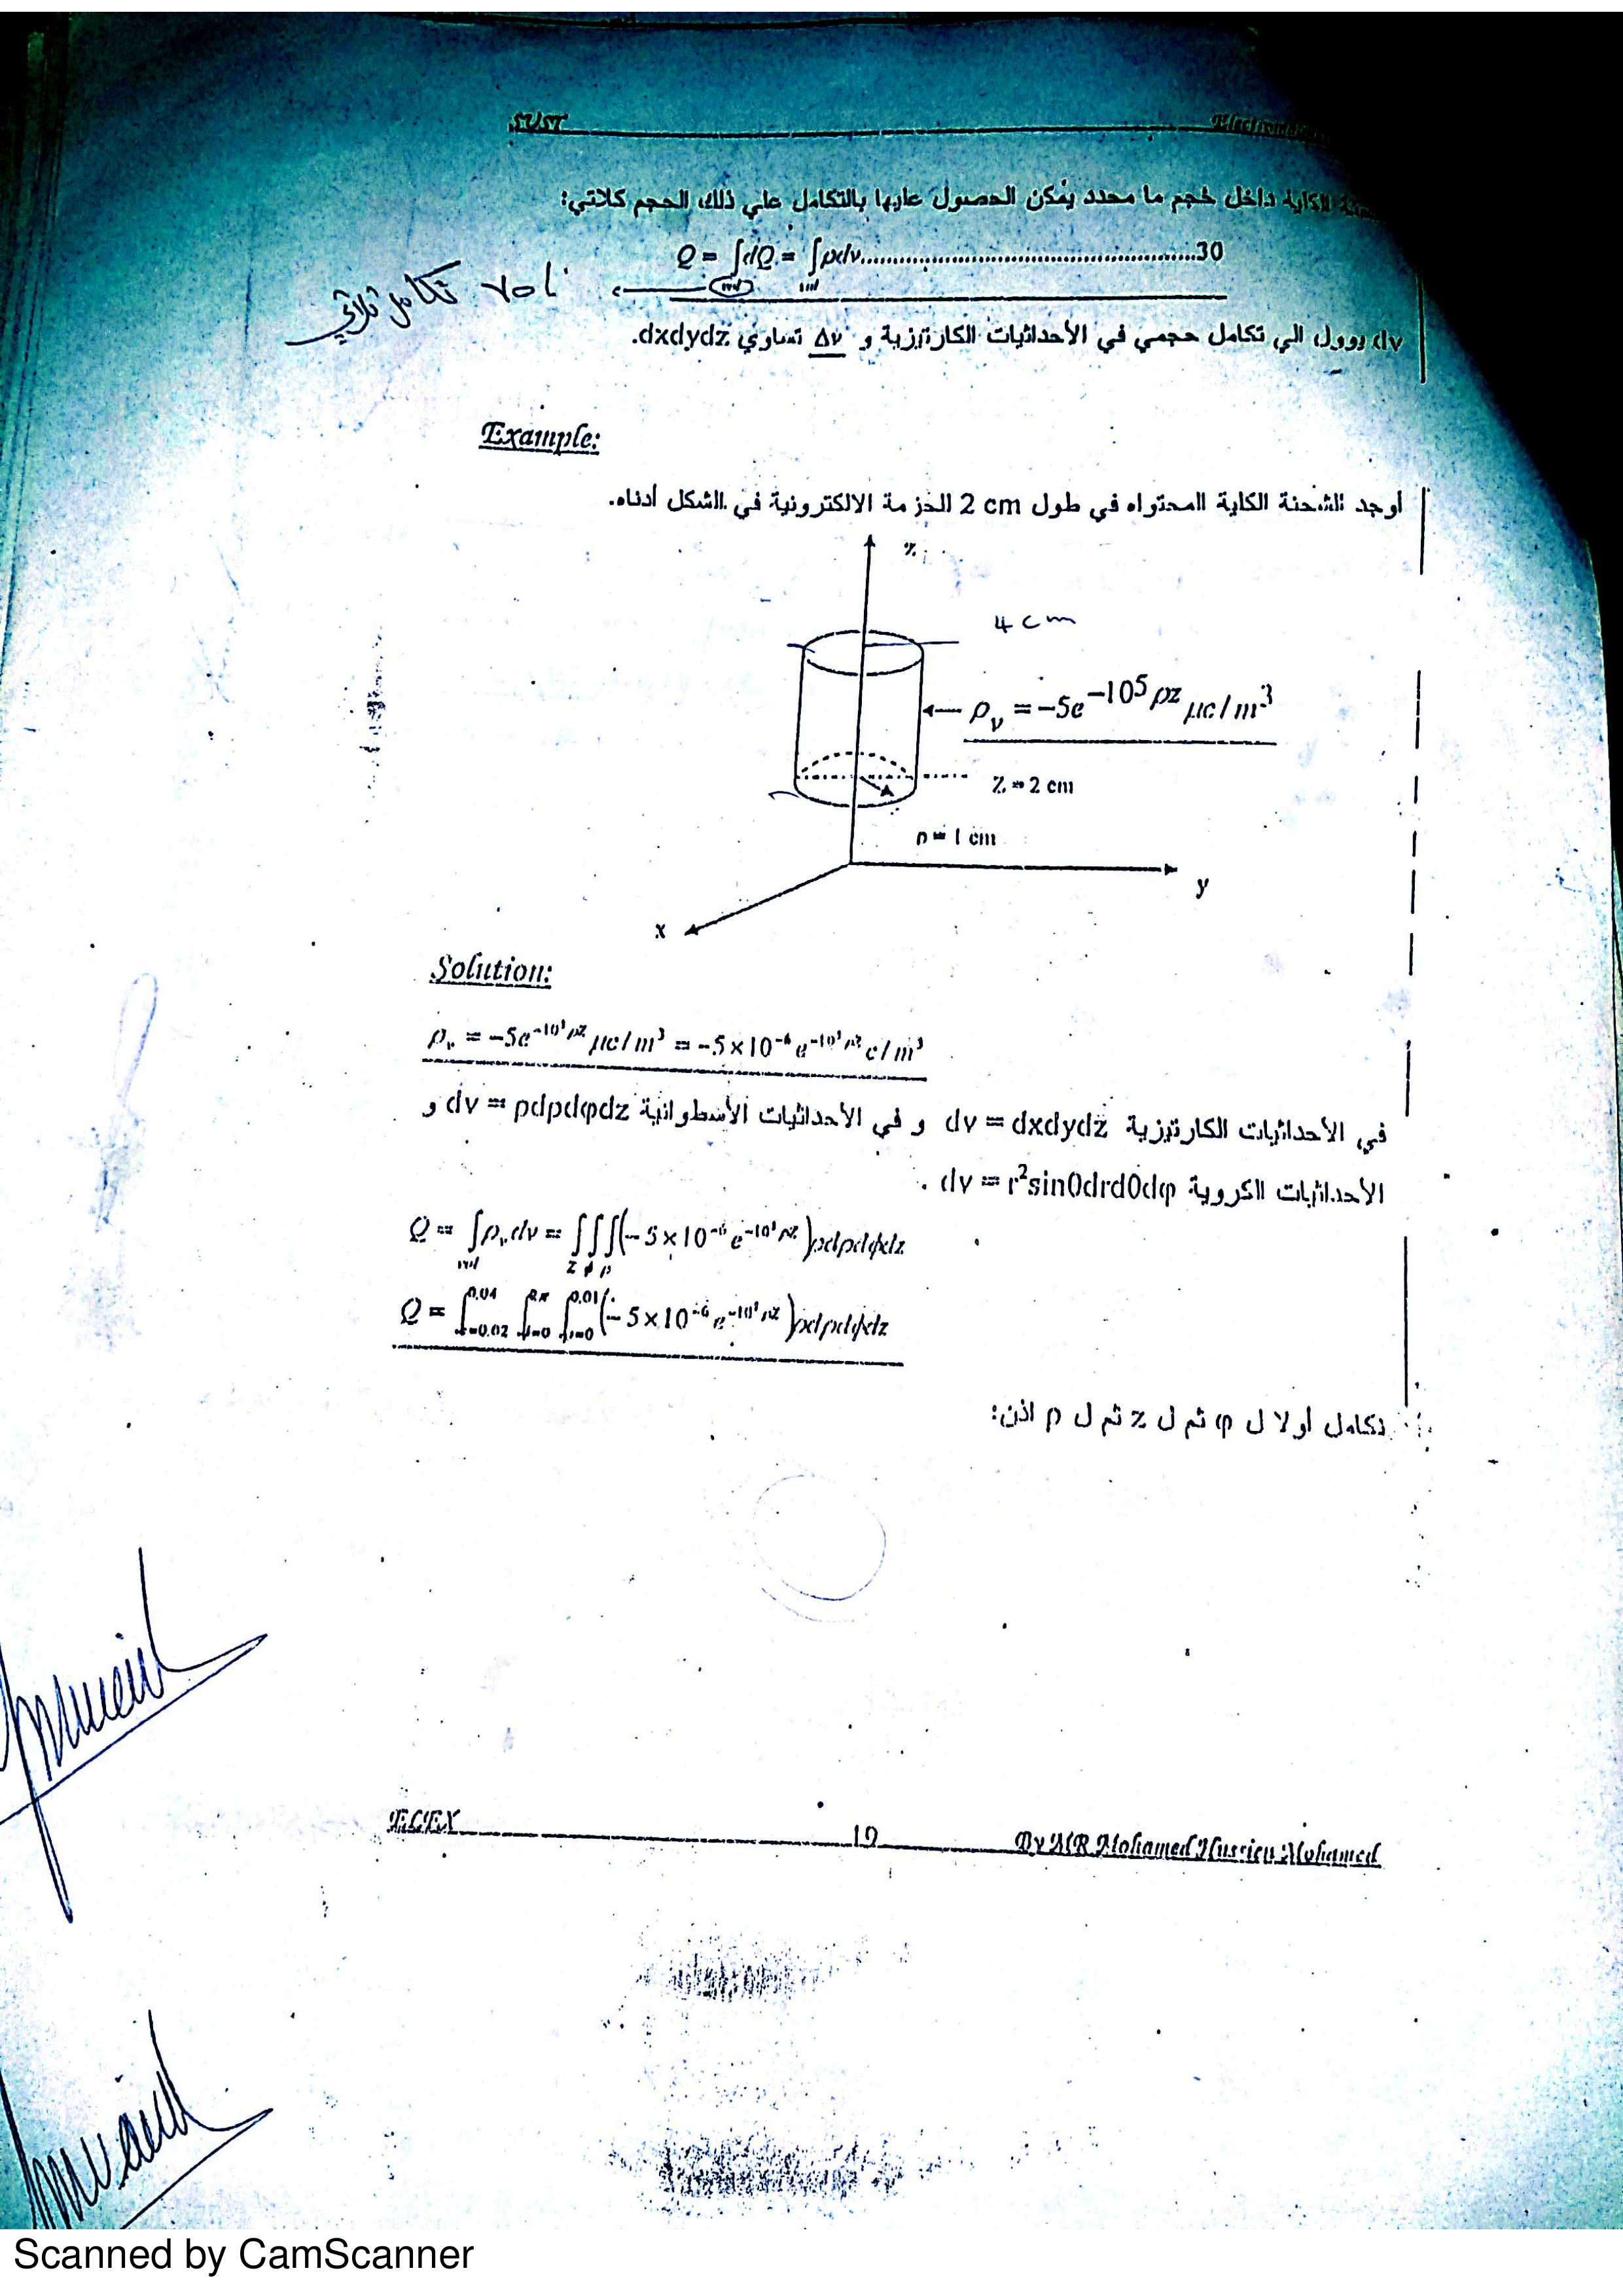 SUST
الكلية داخل حجم ما محدد يمكن الحصول عليها بالتكامل علي ذلك الحجم كلاتي:
Q = ∫dQ = ∫ρdv.......................................................30
vol تكامل ثلاثي
dv يوول الي تكامل حجمي في الأحداثيات الكارتيزية و Δv تساوي dxdydz.
Example:
أوجد الشحنة الكلية المحتواه في طول 2 cm الحزمة الالكترونية في الشكل أدناه.
z
4 cm
ρ_v = -5e^{-10^5 ρz} μc/m^3
Z = 2 cm
ρ = 1 cm
y
x
Solution:
ρ_v = -5e^{-10^5 ρz} μc/m^3 = -5×10^{-6} e^{-10^5 ρz} c/m^3
في الأحداثيات الكارتيزية dv = dxdydz و في الأحداثيات الأسطوانية dv = ρdρdφdz و
الأحداثيات الكروية dv = r²sinθdrdθdφ .
Q = ∫_{vol} ρ_v dv = ∫∫∫_{z φ ρ} (-5×10^{-6} e^{-10^5 ρz})ρdρdφdz
Q = ∫_{z=0.02}^{0.04} ∫_{φ=0}^{2π} ∫_{ρ=0}^{0.01} (-5×10^{-6} e^{-10^5 ρz})ρdρdφdz
نكامل أولا ل φ ثم ل z ثم ل ρ اذن:
ECEX 19 By MR Mohamed Hussien Mohamed
Scanned by CamScanner